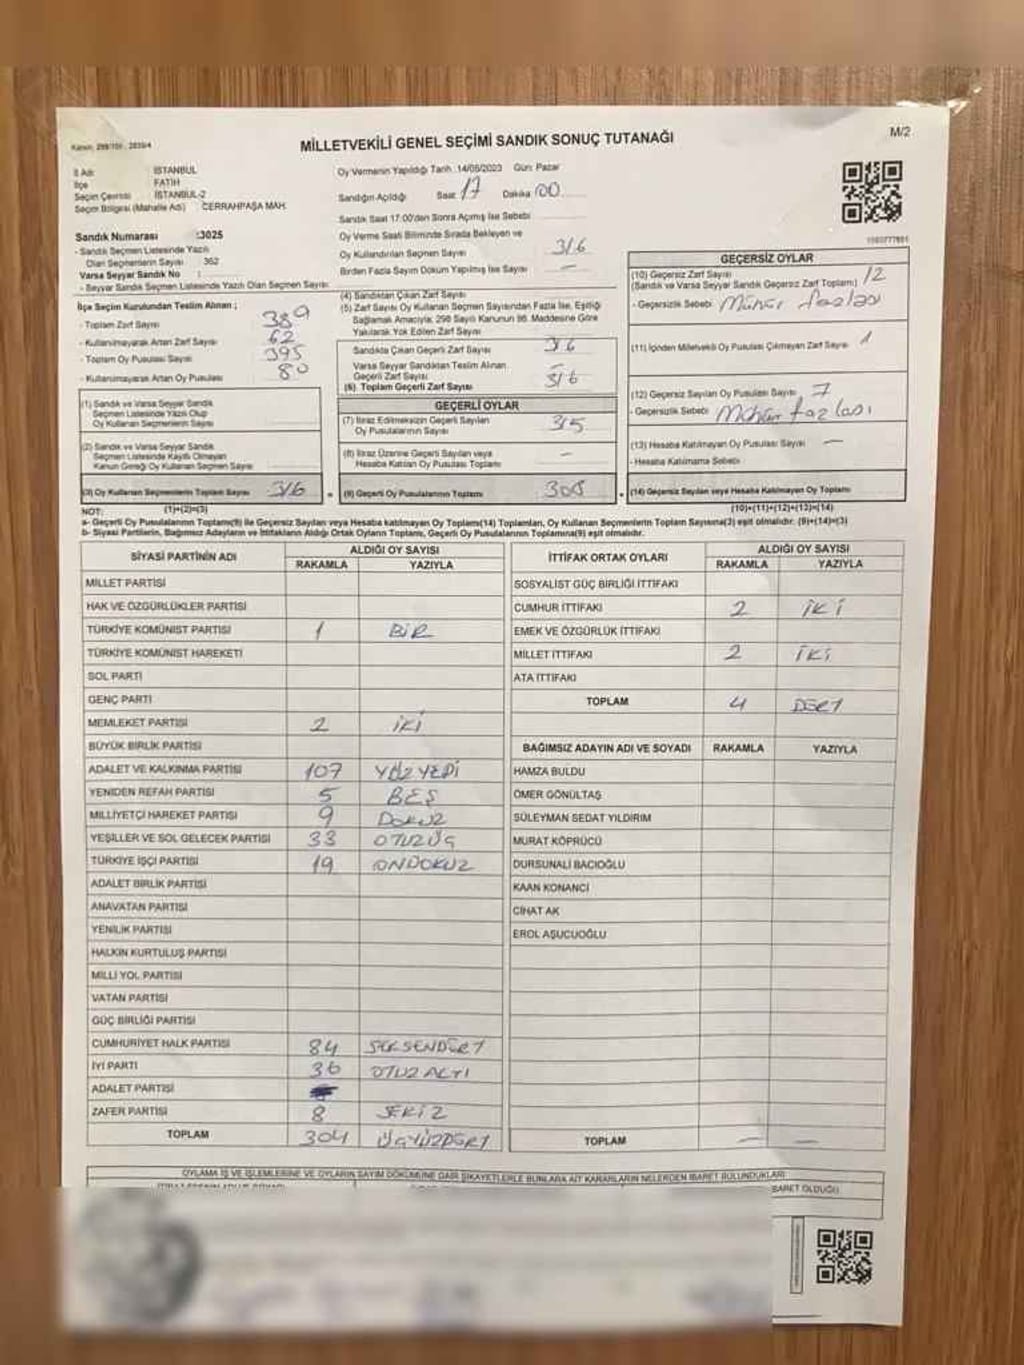 MİLLETVEKİLİ GENEL SEÇİMİ SANDIK SONUÇ TUTANAĞI
M/2
İl Adı İSTANBUL
İlçe FATİH
Seçim Çevresi İSTANBUL-2
Seçim Bölgesi (Mahalle Adı) CERRAHPAŞA MAH.
Sandık Numarası :3025
- Sandık Seçmen Listesinde Yazılı
Olan Seçmenlerin Sayısı 362
Varsa Seyyar Sandık No :
- Seyyar Sandık Seçmen Listesinde Yazılı Olan Seçmen Sayısı:
Oy Vermenin Yapıldığı Tarih :14/05/2023 Gün: Pazar
Sandığın Açıldığı Saat 17 Dakika 00
Sandık Saat 17:00'den Sonra Açılmış İse Sebebi
Oy Verme Saati Bitiminde Sırada Bekleyen ve
Oy Kullandırılan Seçmen Sayısı 316
Birden Fazla Sayım Döküm Yapılmış İse Sayısı —
İlçe Seçim Kurulundan Teslim Alınan ;
- Toplam Zarf Sayısı 389
- Kullanılmayarak Artan Zarf Sayısı 62
- Toplam Oy Pusulası Sayısı 395
- Kullanılmayarak Artan Oy Pusulası 80
(1) Sandık ve Varsa Seyyar Sandık
Seçmen Listesinde Yazılı Olup
Oy Kullanan Seçmenlerin Sayısı
(2) Sandık ve Varsa Seyyar Sandık
Seçmen Listesinde Kayıtlı Olmayan
Kanun Gereği Oy Kullanan Seçmen Sayısı
(3) Oy Kullanan Seçmenlerin Toplam Sayısı 316
(1)+(2)=(3)
(4) Sandıktan Çıkan Zarf Sayısı
(5) Zarf Sayısı Oy Kullanan Seçmen Sayısından Fazla İse, Eşitliği
Sağlamak Amacıyla; 298 Sayılı Kanunun 98. Maddesine Göre
Yakılarak Yok Edilen Zarf Sayısı
Sandıkta Çıkan Geçerli Zarf Sayısı 316
Varsa Seyyar Sandıktan Teslim Alınan
Geçerli Zarf Sayısı —
(6). Toplam Geçerli Zarf Sayısı 316
GEÇERLİ OYLAR
(7) İtiraz Edilmeksizin Geçerli Sayılan
Oy Pusulalarının Sayısı 315
(8) İtiraz Üzerine Geçerli Sayılan veya
Hesaba Katılan Oy Pusulası Toplamı —
(9) Geçerli Oy Pusulalarının Toplamı 308
GEÇERSİZ OYLAR
(10) Geçersiz Zarf Sayısı 12
(Sandık ve Varsa Seyyar Sandık Geçersiz Zarf Toplamı)
- Geçersizlik Sebebi Mühür fazlası
(11) İçinden Milletvekili Oy Pusulası Çıkmayan Zarf Sayısı 1
(12) Geçersiz Sayılan Oy Pusulası Sayısı 7
- Geçersizlik Sebebi Mühür fazlası
(13) Hesaba Katılmayan Oy Pusulası Sayısı —
- Hesaba Katılmama Sebebi
(14) Geçersiz Sayılan veya Hesaba Katılmayan Oy Toplamı
(10)+(11)+(12)+(13)=(14)
NOT:
a- Geçerli Oy Pusulalarının Toplamı(9) ile Geçersiz Sayılan veya Hesaba katılmayan Oy Toplamı(14) Toplamları, Oy Kullanan Seçmenlerin Toplam Sayısına(3) eşit olmalıdır. (9)+(14)=(3)
b- Siyasi Partilerin, Bağımsız Adayların ve İttifakların Aldığı Ortak Oyların Toplamı, Geçerli Oy Pusulalarının Toplamına(9) eşit olmalıdır.
SİYASİ PARTİNİN ADI ALDIĞI OY SAYISI
RAKAMLA YAZIYLA
MİLLET PARTİSİ
HAK VE ÖZGÜRLÜKLER PARTİSİ
TÜRKİYE KOMÜNİST PARTİSİ 1 BİR
TÜRKİYE KOMÜNİST HAREKETİ
SOL PARTİ
GENÇ PARTİ
MEMLEKET PARTİSİ 2 İKİ
BÜYÜK BİRLİK PARTİSİ
ADALET VE KALKINMA PARTİSİ 107 YÜZYEDİ
YENİDEN REFAH PARTİSİ 5 BEŞ
MİLLİYETÇİ HAREKET PARTİSİ 9 DOKUZ
YEŞİLLER VE SOL GELECEK PARTİSİ 33 OTUZÜÇ
TÜRKİYE İŞÇİ PARTİSİ 19 ONDOKUZ
ADALET BİRLİK PARTİSİ
ANAVATAN PARTİSİ
YENİLİK PARTİSİ
HALKIN KURTULUŞ PARTİSİ
MİLLİ YOL PARTİSİ
VATAN PARTİSİ
GÜÇ BİRLİĞİ PARTİSİ
CUMHURİYET HALK PARTİSİ 84 SEKSENDÖRT
İYİ PARTİ 36 OTUZ ALTI
ADALET PARTİSİ
ZAFER PARTİSİ 8 SEKİZ
TOPLAM 304 ÜÇYÜZDÖRT
İTTİFAK ORTAK OYLARI ALDIĞI OY SAYISI
RAKAMLA YAZIYLA
SOSYALİST GÜÇ BİRLİĞİ İTTİFAKI
CUMHUR İTTİFAKI 2 İKİ
EMEK VE ÖZGÜRLÜK İTTİFAKI
MİLLET İTTİFAKI 2 İKİ
ATA İTTİFAKI
TOPLAM 4 DÖRT
BAĞIMSIZ ADAYIN ADI VE SOYADI RAKAMLA YAZIYLA
HAMZA BULDU
ÖMER GÖNÜLTAŞ
SÜLEYMAN SEDAT YILDIRIM
MURAT KÖPRÜCÜ
DURSUNALİ BACIOĞLU
KAAN KONANCI
CİHAT AK
EROL AŞUCUOĞLU
TOPLAM — —
OYLAMA İŞ VE İŞLEMLERİNE VE OYLARIN SAYIM DÖKÜMÜNE DAİR ŞİKAYETLERLE BUNLARA AİT KARARLARIN NELERDEN İBARET BULUNDUKLARI
BARET OLDUĞU